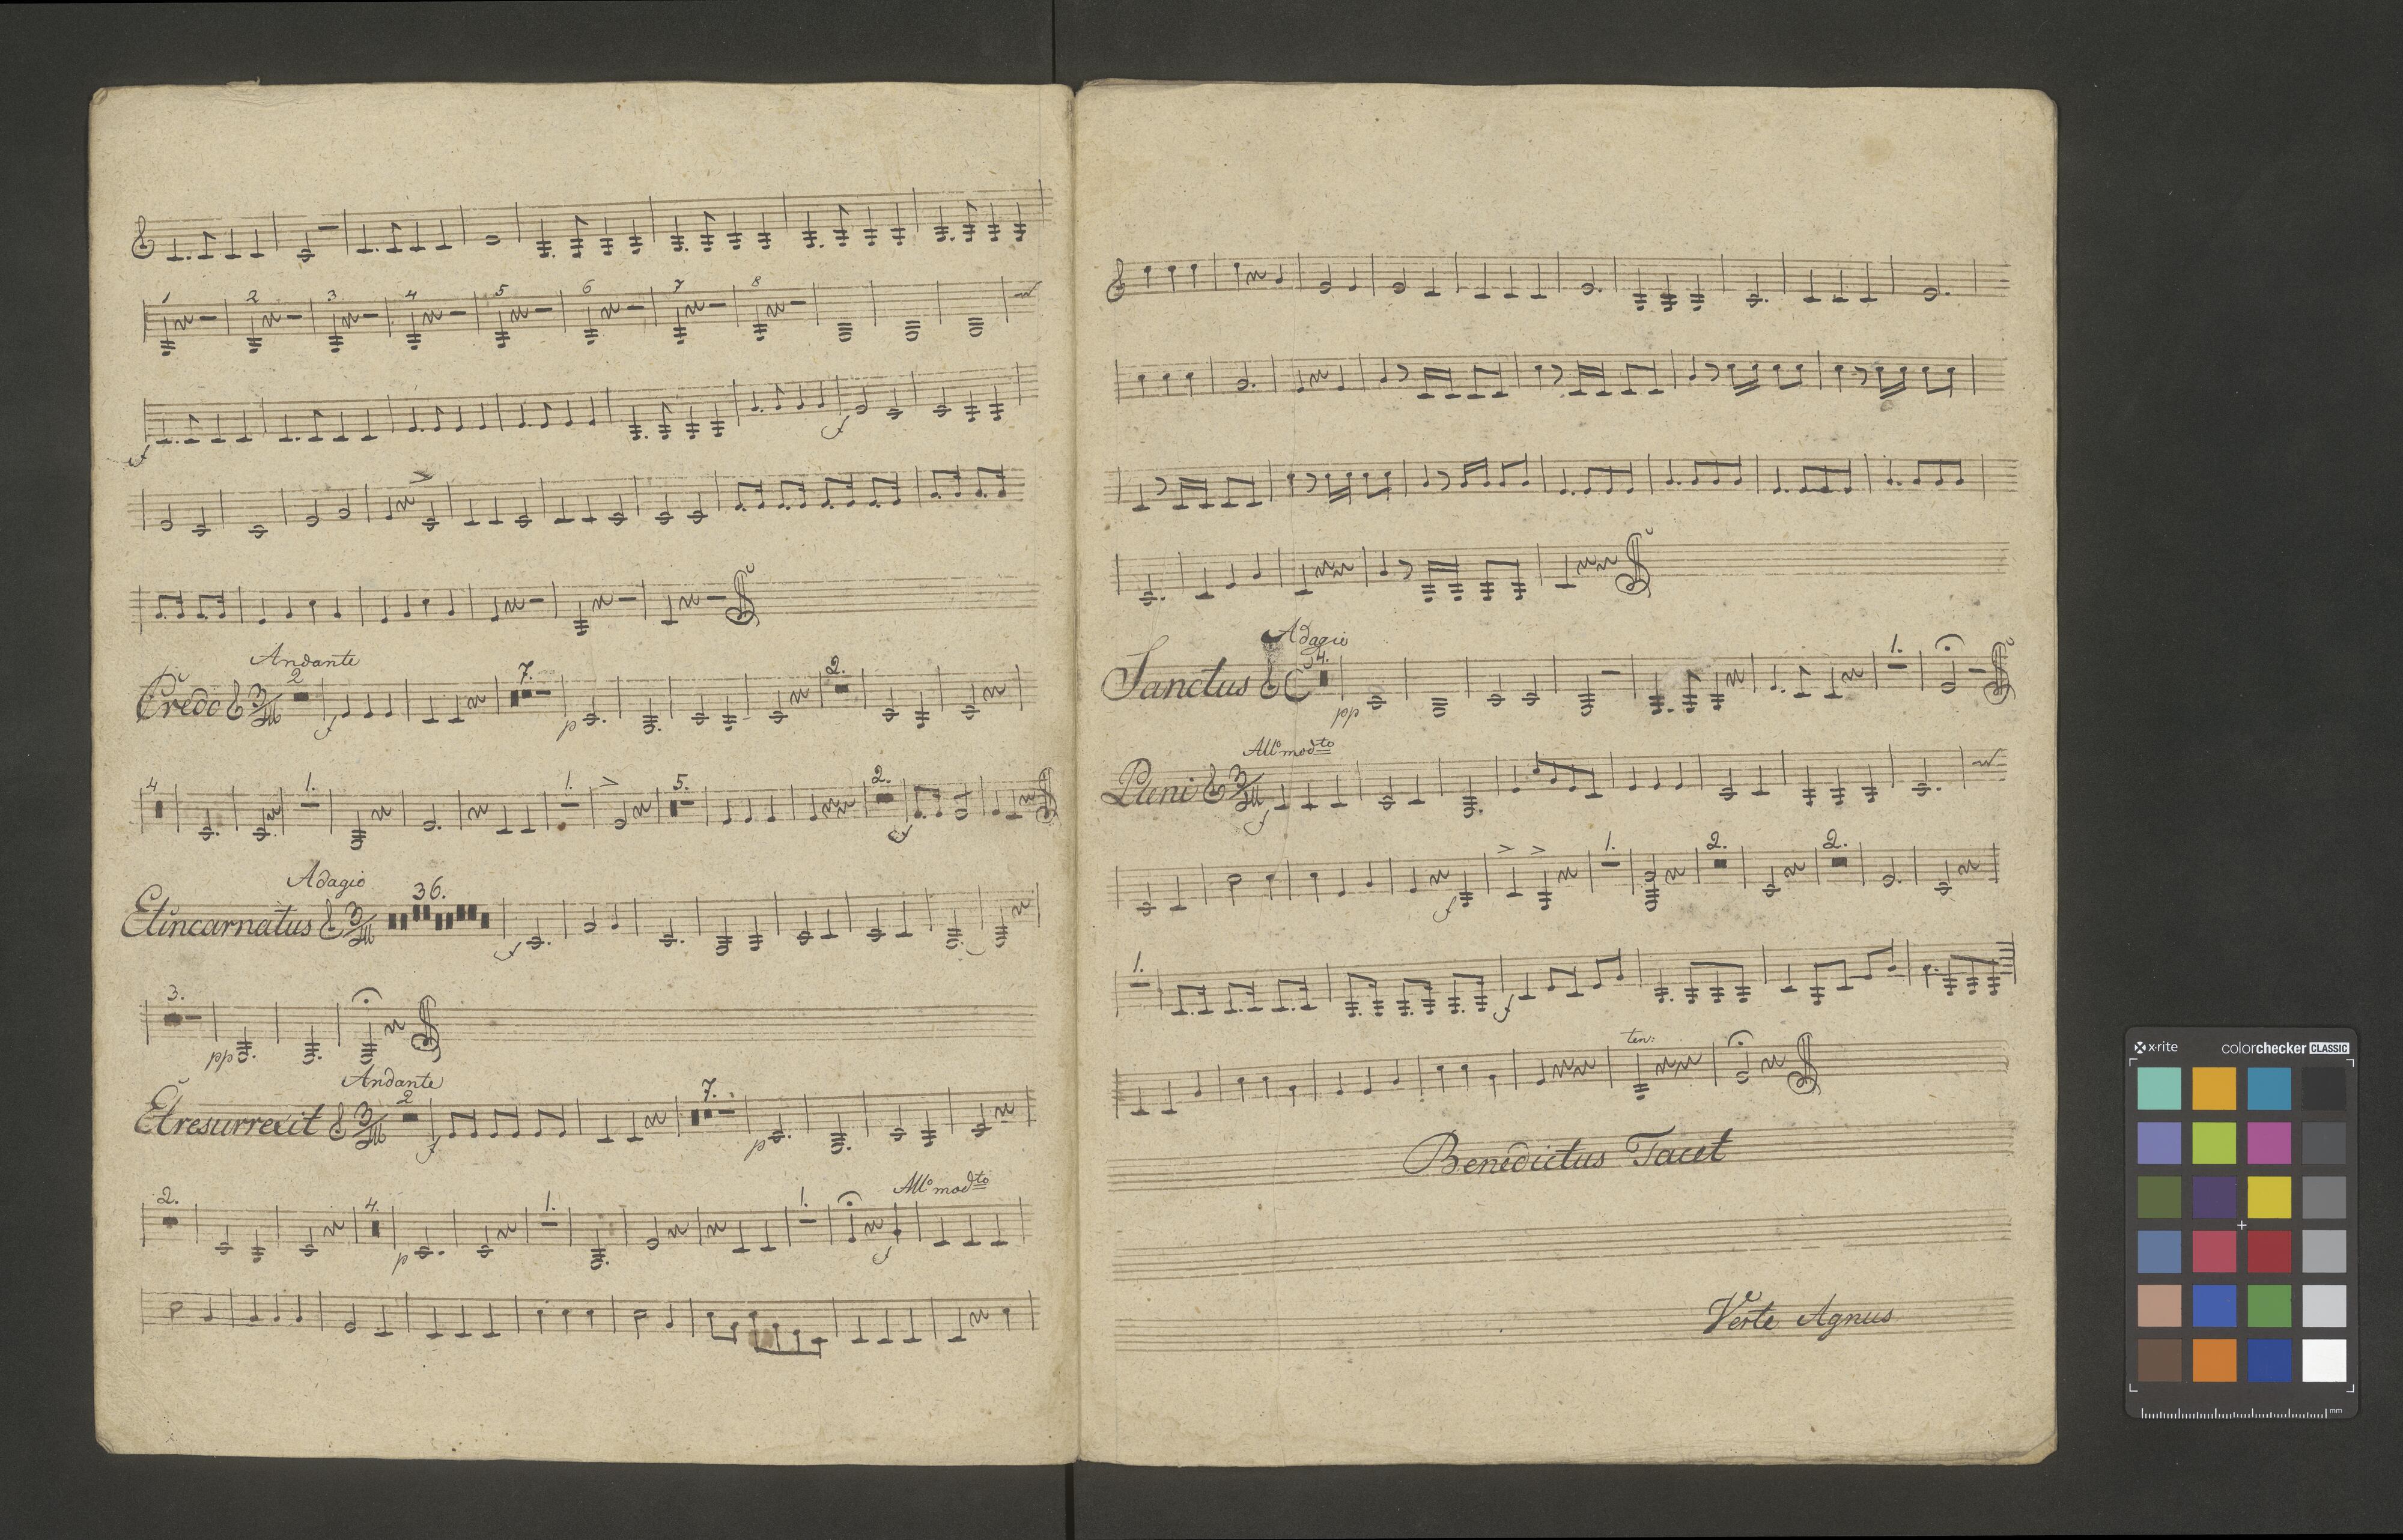 1 2 3 4 5 6 7 8
f f
Andante
Credo 2 f 7. p 2.
4 1. 1. 5. 2. f
Adagio
Et incarnatus 36. f
3. pp
Andante
Et resurrexit 2 f 7. p
2. 4. p 1. 1. f Allo modto
Adagio
Sanctus C 4. pp 1.
Allo modto
Pleni f
f 1. 2. 2.
1. f
ten:
Benedictus Tacet
Verte Agnus
x-rite colorchecker CLASSIC
mm